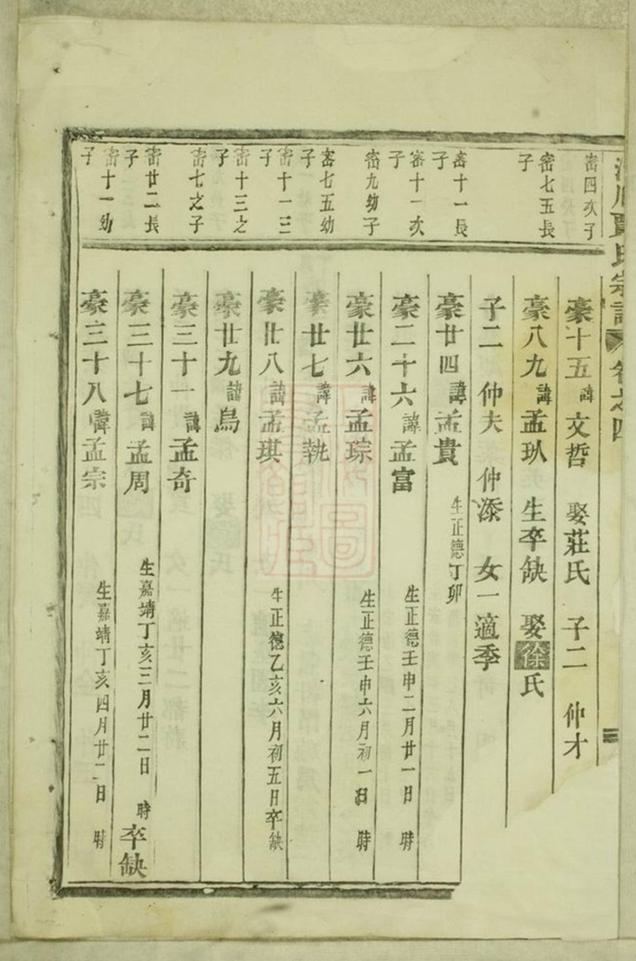 賈氏宗譜 卷之四
密四次子
豪十五諱文哲 娶莊氏 子二 仲才
密七五長子
豪八九諱孟㺨 生卒缺 娶徐氏
子二 仲夫 仲添 女一適季
密十一長子
豪廿四諱孟貴 生正德丁卯
密十一次子
豪二十六諱孟富 生正德壬申二月廿一日 時
密九幼子
豪廿六諱孟琮 生正德壬申六月初一日 時
密七五幼子
豪廿七諱孟執
密十一三子
豪廿八諱孟琪 生正德乙亥六月初五日卒缺
密十三之子
豪廿九諱烏
密七之子
豪三十一諱孟奇
密廿二長子
豪三十七諱孟周 生嘉靖丁亥三月廿二日 時 卒缺
密十一幼子
豪三十八諱孟宗 生嘉靖丁亥四月廿二日 時